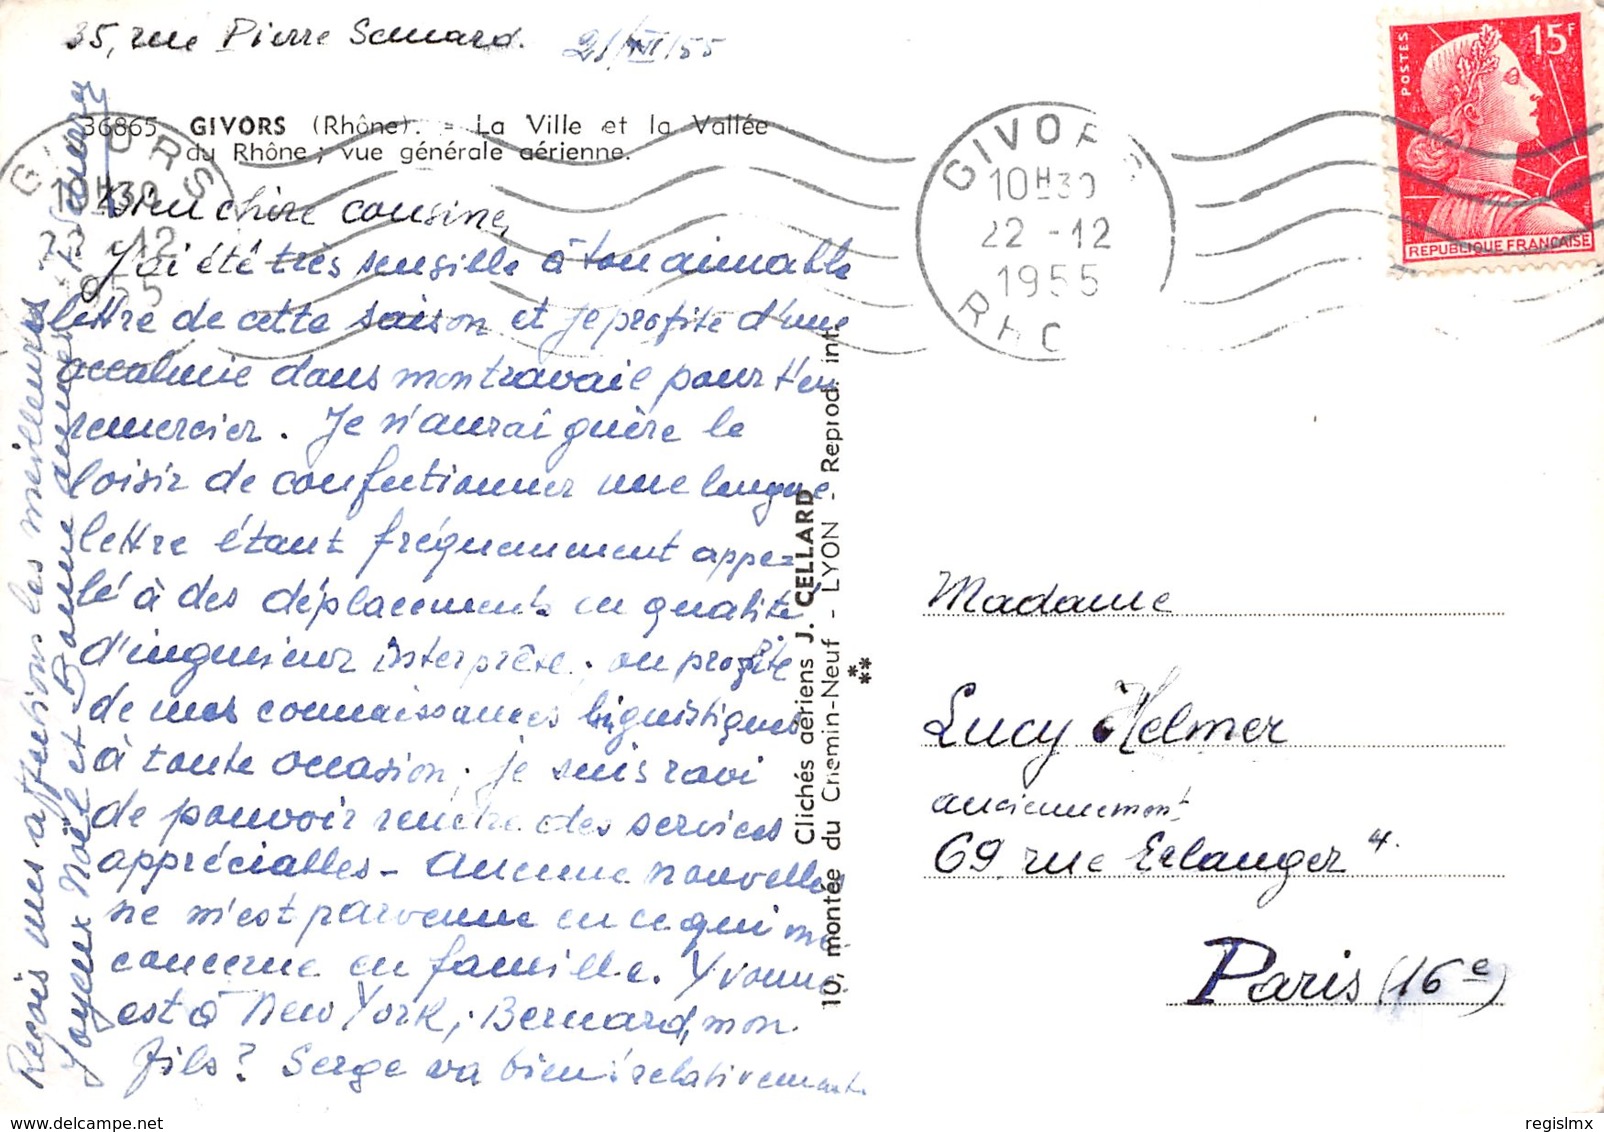 35, rue Pierre Semard. 21/XII/55
36865 GIVORS (Rhône). - La Ville et la Vallée
du Rhône ; vue générale aérienne.
Bien chère cousine,
J'ai été très sensible à ton aimable
lettre de cette saison et je profite d'une
accalmie dans mon travail pour t'en
remercier. Je n'aurai guère le
loisir de confectionner une longue
lettre étant fréquemment appe-
lé à des déplacements en qualité
d'ingénieur interprète ; on profite
de mes connaissances linguistiques
à toute occasion ; je suis ravi
de pouvoir rendre des services
appréciables - Aucune nouvelle
ne m'est parvenue en ce qui me
concerne en famille. Yvonne
est à New York, Bernard, mon
fils ? Serge va bien relativement
Reçois mes affections les meilleures
Joyeux Noël et Bonne année
GIVORS
10H30
22 -12
1955
GIVORS
10H30
22 -12
1955
RHO
POSTES
15F
REPUBLIQUE FRANCAISE
Clichés aériens J. CELLARD
10, montée du Chemin-Neuf - LYON - Reprod. int.
Madame
Lucy Helmer
anciennement
69, rue Erlanger
Paris (16e)
regislmx